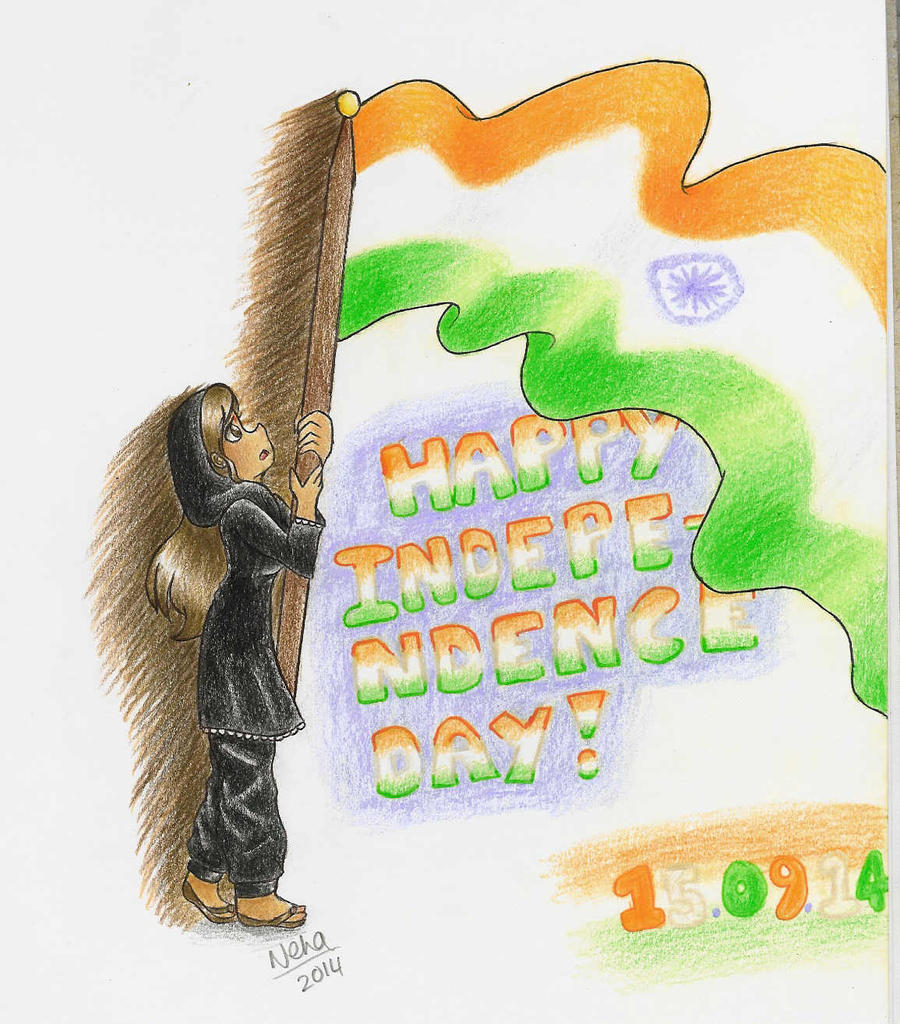 HAPPY
INDEPE-
NDENCE
DAY!
15.09.14
Neha
2014